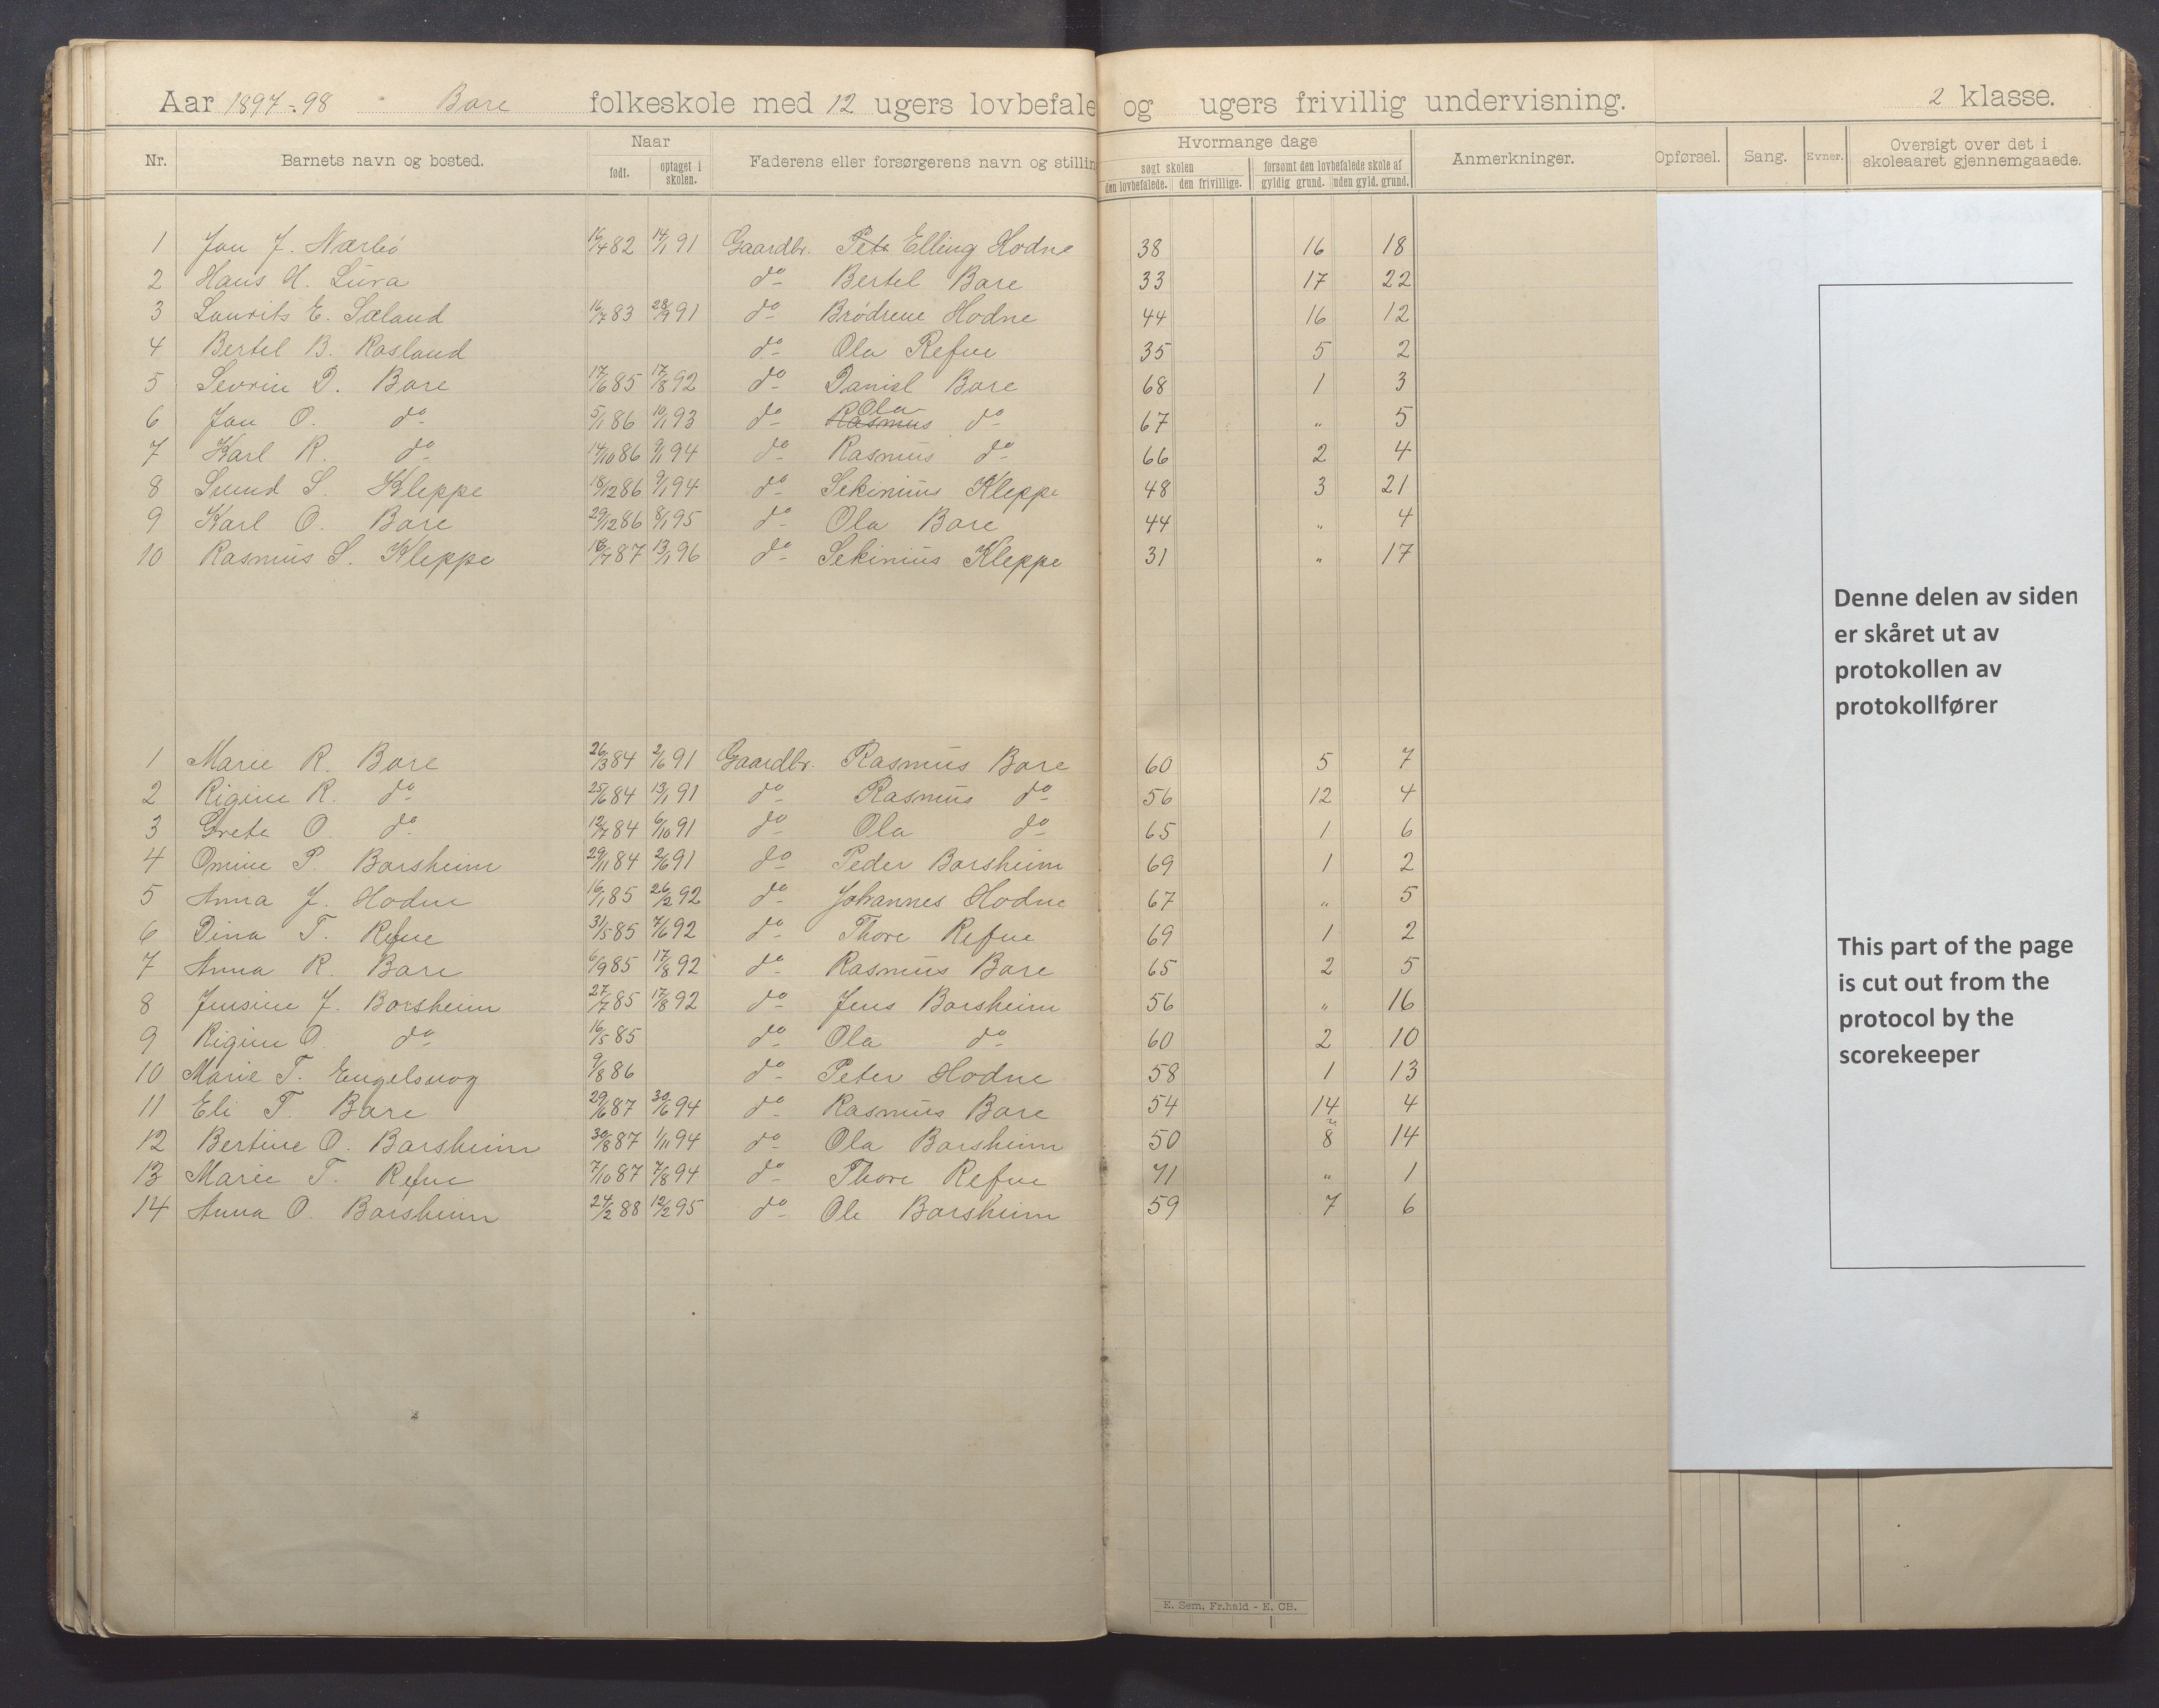 Aar 1897-98 Bore folkeskole med 12 ugers lovbefale og ugers frivillig undervisning. 2 klasse.
Nr. Barnets navn og bosted. Naar født. optaget i skolen. Faderens eller forsørgerens navn og stillin Hvormange dage søgt skolen den lovbefalede. den frivillige. forsømt den lovbefalede skole af gyldig grund. uden gyld. grund. Anmerkninger. Opførsel. Sang. Evner. Oversigt over det i skoleaaret gjennemgaaede.
1 Jon J. Nærbø 16/4 82 14/1 91 Gaardbr. Pete Elling Hodne 38 16 18
2 Hans H. Lura do Bertel Bore 33 17 22
3 Laurits E. Sæland 16/7 83 28/9 91 do Brødrene Hodne 44 16 12
4 Bertel B. Rosland do Ola Refne 35 5 2
5 Sevrin D. Bore 17/6 85 17/8 92 do Daniel Bore 68 1 3
6 Jon O. do 5/1 86 10/1 93 do Rasmus Ola do 67 " 5
7 Karl R. do 14/10 86 9/1 94 do Rasmus do 66 2 4
8 Svend S. Kleppe 18/12 86 9/1 94 do Sikinius Kleppe 48 3 21
9 Karl O. Bore 29/12 86 8/1 95 do Ola Bore 44 " 4
10 Rasmus S. Kleppe 18/7 87 13/1 96 do Sekinius Kleppe 31 " 17
1 Marie R. Bore 26/3 84 2/6 91 Gaardbr. Rasmus Bore 60 5 7
2 Rigine R. do 25/6 84 13/1 91 do Rasmus do 56 12 4
3 Grete O. do 12/7 84 6/10 91 do Ola do 65 1 6
4 Omine P. Borsheim 29/11 84 2/6 91 do Peder Borsheim 69 1 2
5 Anna J. Hodne 16/1 85 26/2 92 do Johannes Hodne 67 " 5
6 Dina T. Refne 31/5 85 7/6 92 do Thore Refne 69 1 2
7 Anna R. Bore 6/9 85 17/8 92 do Rasmus Bore 65 2 5
8 Jensine J. Borsheim 27/7 85 17/8 92 do Jens Borsheim 56 " 16
9 Rigine O. do 16/5 85 do Ola do 60 2 10
10 Marie T. Engelsvog 9/8 86 do Peter Hodne 58 1 13
11 Eli T. Bore 29/6 87 30/6 94 do Rasmus Bore 54 14 4
12 Bertine O. Borsheim 30/8 87 1/11 94 do Ola Borsheim 50 8 14
13 Marie T. Refne 7/10 87 7/8 94 do Thore Refne 71 " 1
14 Anna O. Borsheim 24/2 88 12/2 95 do Ole Borsheim 59 7 6
Denne delen av siden
er skåret ut av
protokollen av
protokollfører
This part of the page
is cut out from the
protocol by the
scorekeeper
E. Sem, Fr.hald - E. CB.